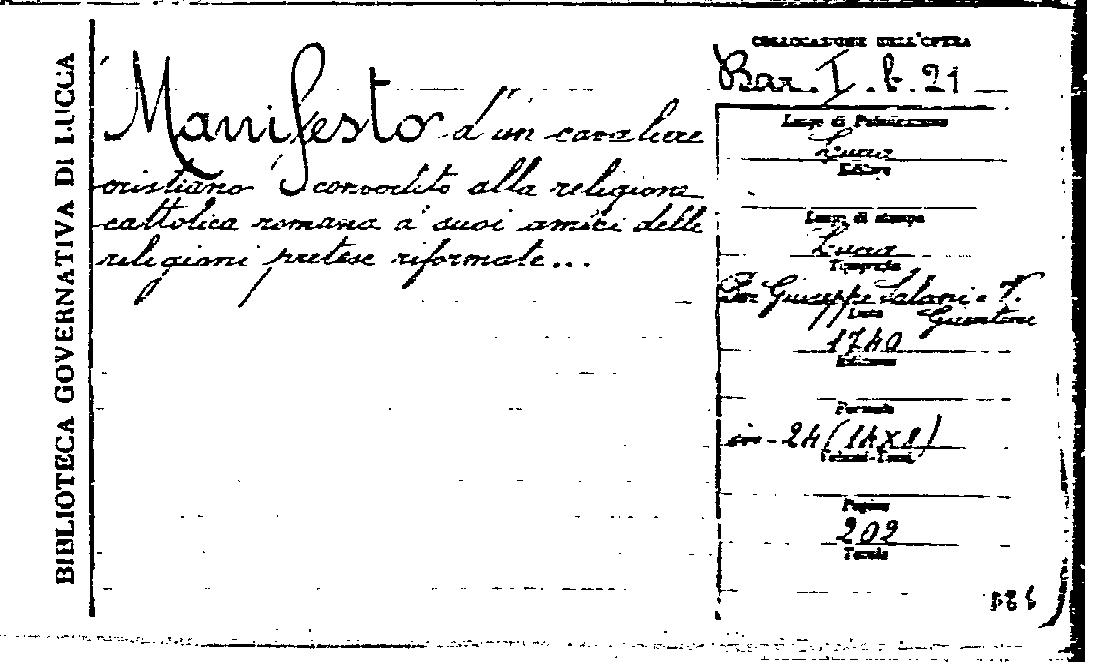 BIBLIOTECA GOVERNATIVA DI LUCCA
Manifesto d'un cavaliere
cristiano convertito alla religione
cattolica romana a' suoi amici delle
religioni pretese riformate...
COLLOCAZIONE DELL'OPERA
Bar. I. b. 21
Luogo di Pubblicazione
Lucca
Editore
Luogo di stampa
Lucca
Tipografia
Per Giuseppe Salani e V.
Giuntini
Data
1740
Edizione
Formato
in-24 (14x8)
Volumi-Tomi
Pagine
202
Tavole